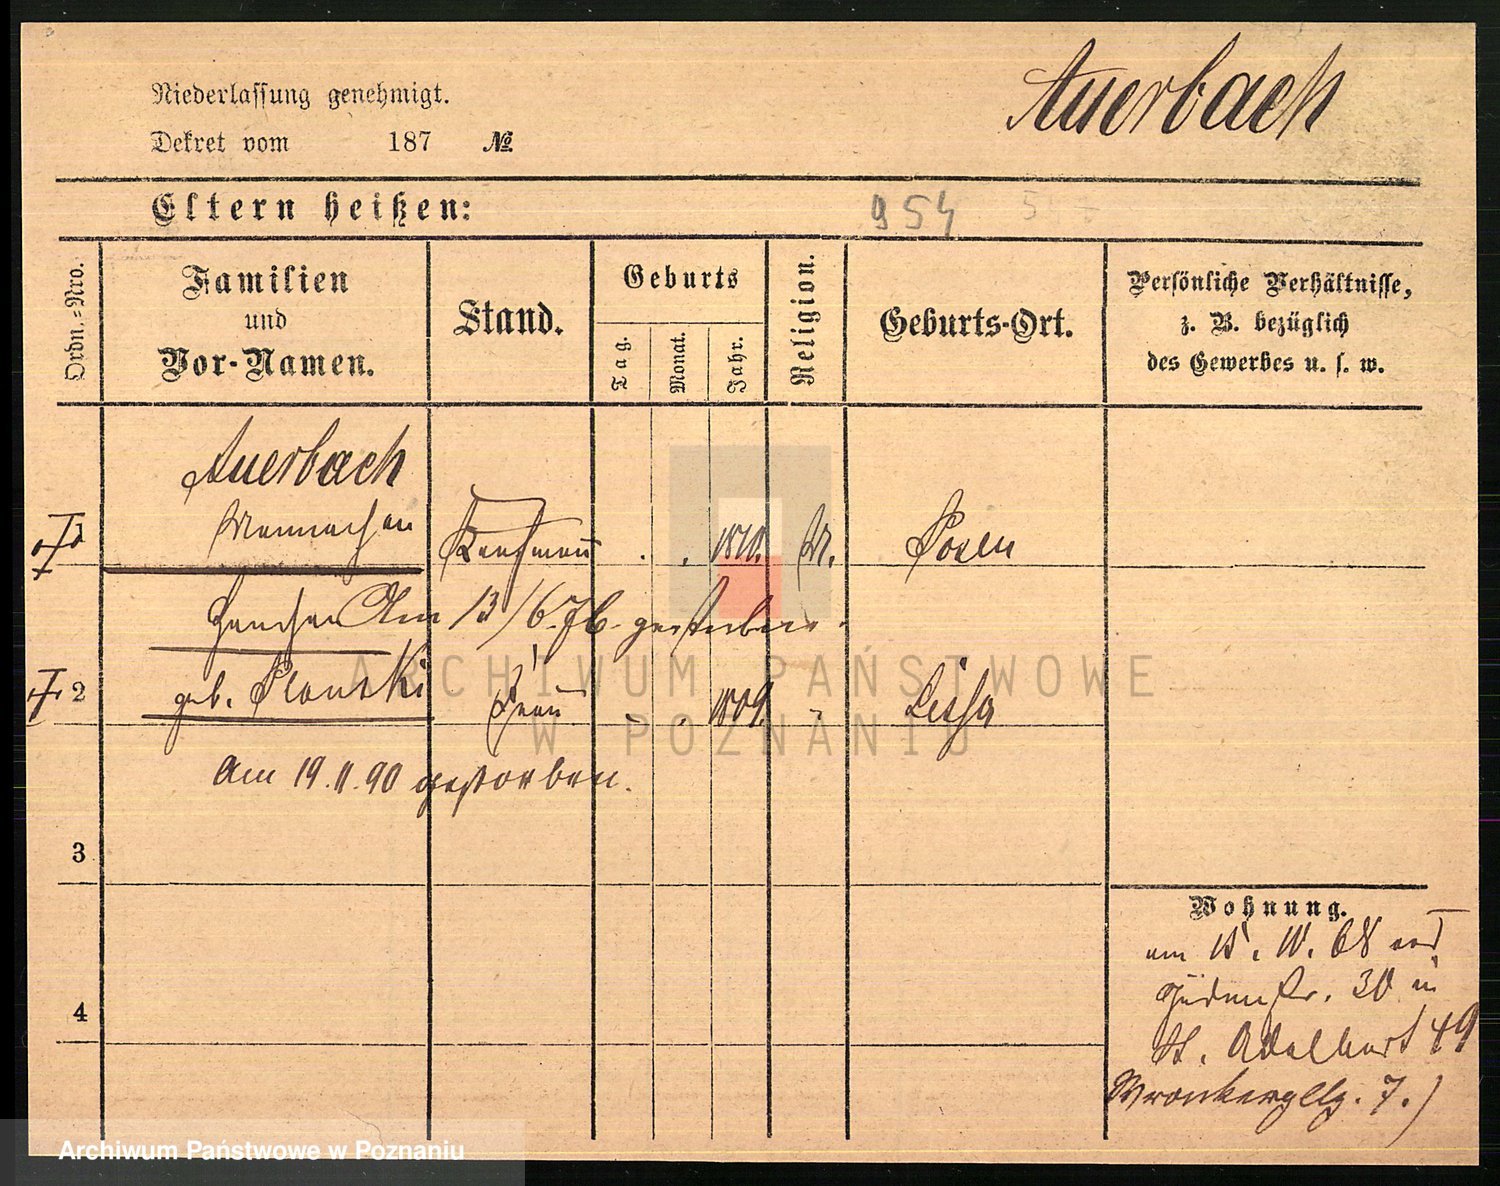 Niederlassung genehmigt.
Auerbach
Dekret vom 187 №
Eltern heißen:
954
Ordn.-Nro.
Familien und Vor-Namen.
Stand.
Geburts
Tag.
Monat.
Jahr.
Religion.
Geburts-Ort.
Persönliche Verhältnisse,
z. B. bezüglich
des Gewerbes u. s. w.
Auerbach
1 Kaufmann . . 1810. M. Posen
Am 13/6. 76. gestorben.
2 geb. Plonski Frau 1809 " Lissa
Am 19.11.90 gestorben.
3
Wohnung.
am 15. 10. 68 von
Judenstr. 30 in
4
St. Adalbert 49
Wronkerplg. 7.)
ARCHIWUM PAŃSTWOWE
W POZNANIU
Archiwum Państwowe w Poznaniu